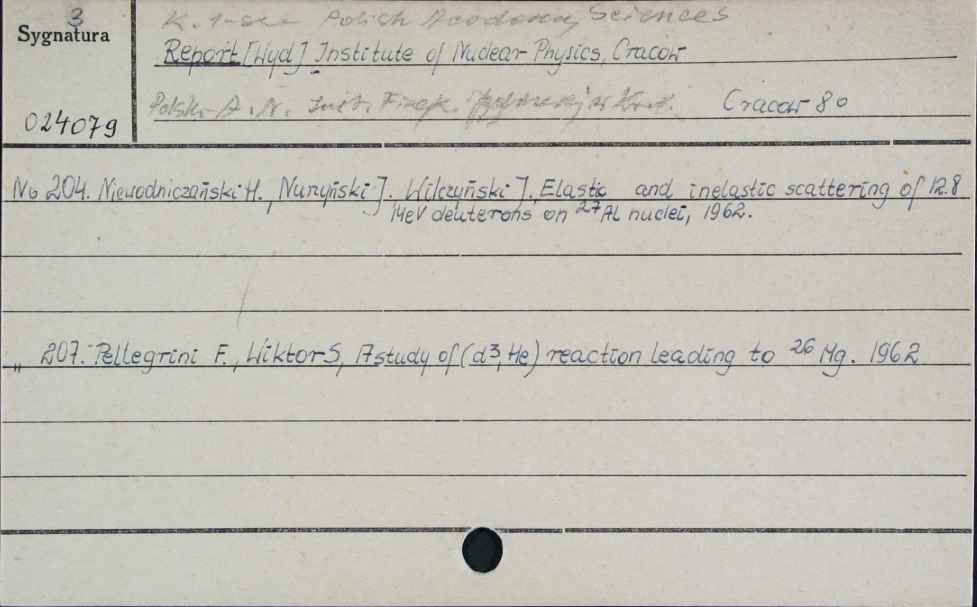 3
Sygnatura
024079
Polish Academy Sciences
Report [Wyd] Institute of Nuclear Physics, Cracow
Polsk. A. N. Inst. Fizyk. Cracow 80
No 204. Niewodniczański H., Nurzyński J. Wilczyński J. Elastic and inelastic scattering of 12.8
MeV deuterons on ²⁷Al nuclei, 1962.
„ 207. Pellegrini F., Wiktor S, A study of (d³, He) reaction leading to ²⁶Mg. 1962